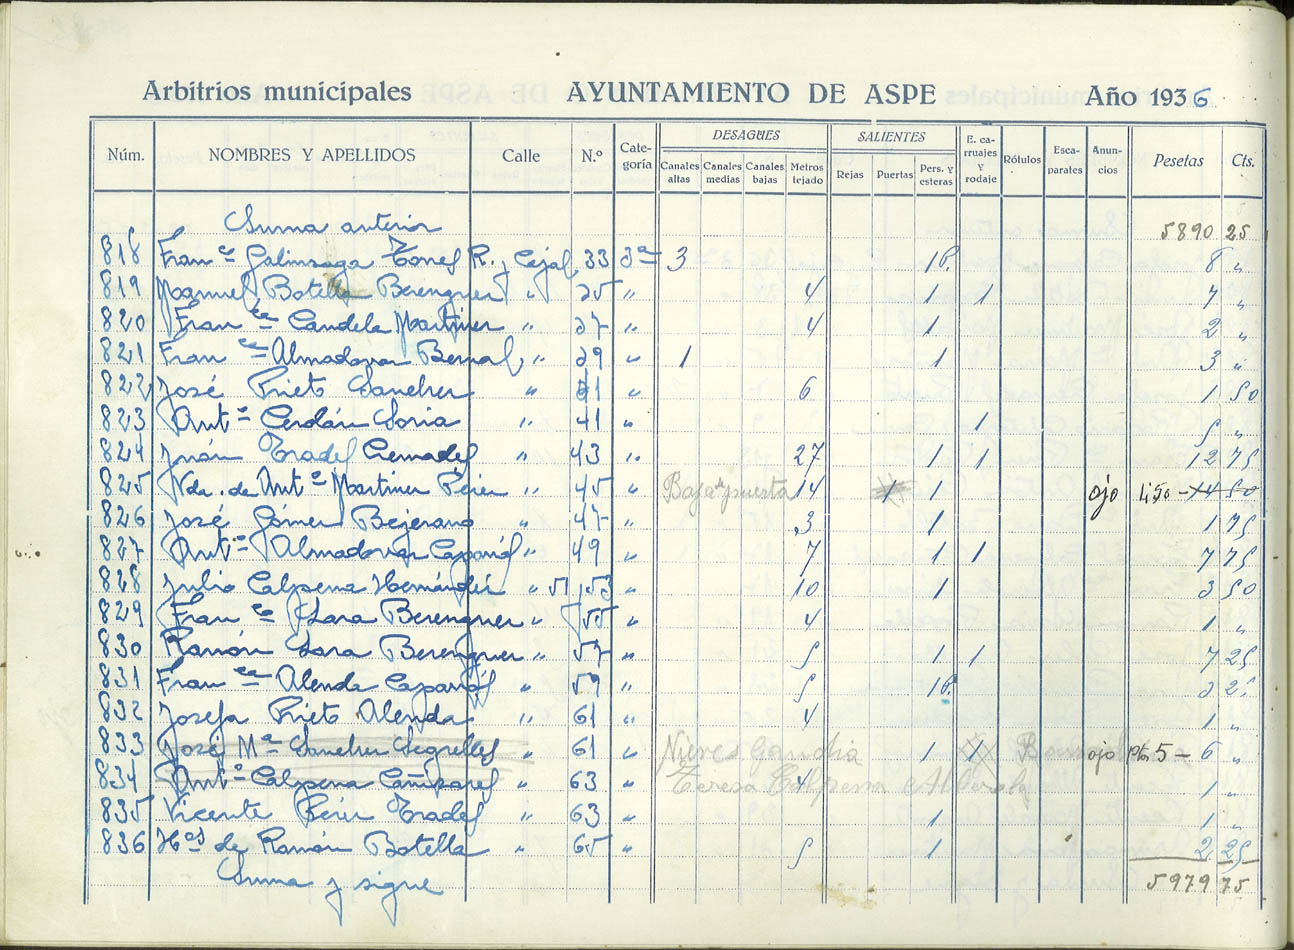 Arbitrios municipales AYUNTAMIENTO DE ASPE Año 1936
Núm. NOMBRES Y APELLIDOS Calle N.º Cate-goría DESAGÜES Canales altas Canales medias Canales bajas Metros tejado SALIENTES Rejas Puertas Pers. y esteras E. ca-rruajes y rodaje Rótulos Esca-parates Anun-cios Pesetas Cts.
Suma anterior 5890 25
818 Fran.co Galinsoga Torres R. y Cajal 33 3ª 3 1 P. 8 "
819 Manuel Botella Berenguer " 25 " 4 1 1 7 "
820 Fran.ca Candela Martinez " 27 " 4 1 2 "
821 Fran.co Almodovar Bernal " 29 " 1 1 3 "
822 José Prieto Sanchez " 31 " 6 1 50
823 Antº Cerdán Soria " 41 " 1 5 "
824 Juán Prades Cremades " 43 " 27 1 1 12 75
825 Vda. de Antº Martinez Pérez " 45 " Baja de puerta 14 1 1 ojo 4'50 - 14 50
826 José Gómez Bejerano " 47 " 3 1 1 75
827 Antº Almodovar Caparrós " 49 " 7 1 1 7 75
828 Julio Calpena Hernández " 51 y 53 " 10 1 3 50
829 Fran.co Lara Berenguer " 55 " 4 1 "
830 Ramón Lara Berenguer " 57 " 5 1 1 7 25
831 Fran.ca Alenda Caparrós " 59 " 5 1 P. 2 25
832 Josefa Prieto Alenda " 61 " 4 1 "
833 José Mª Sanchez Segrelles " 61 " Nieves Gandia 1 1 ojo pts 5 - 6 "
834 Antº Calpena Cañizares " 63 " Teresa Calpena 4 1 "
835 Vicente Pérez Prades " 63 " 1 1 "
836 Hos de Ramón Botella " 65 " 5 1 2 25
Suma y sigue 5979 75